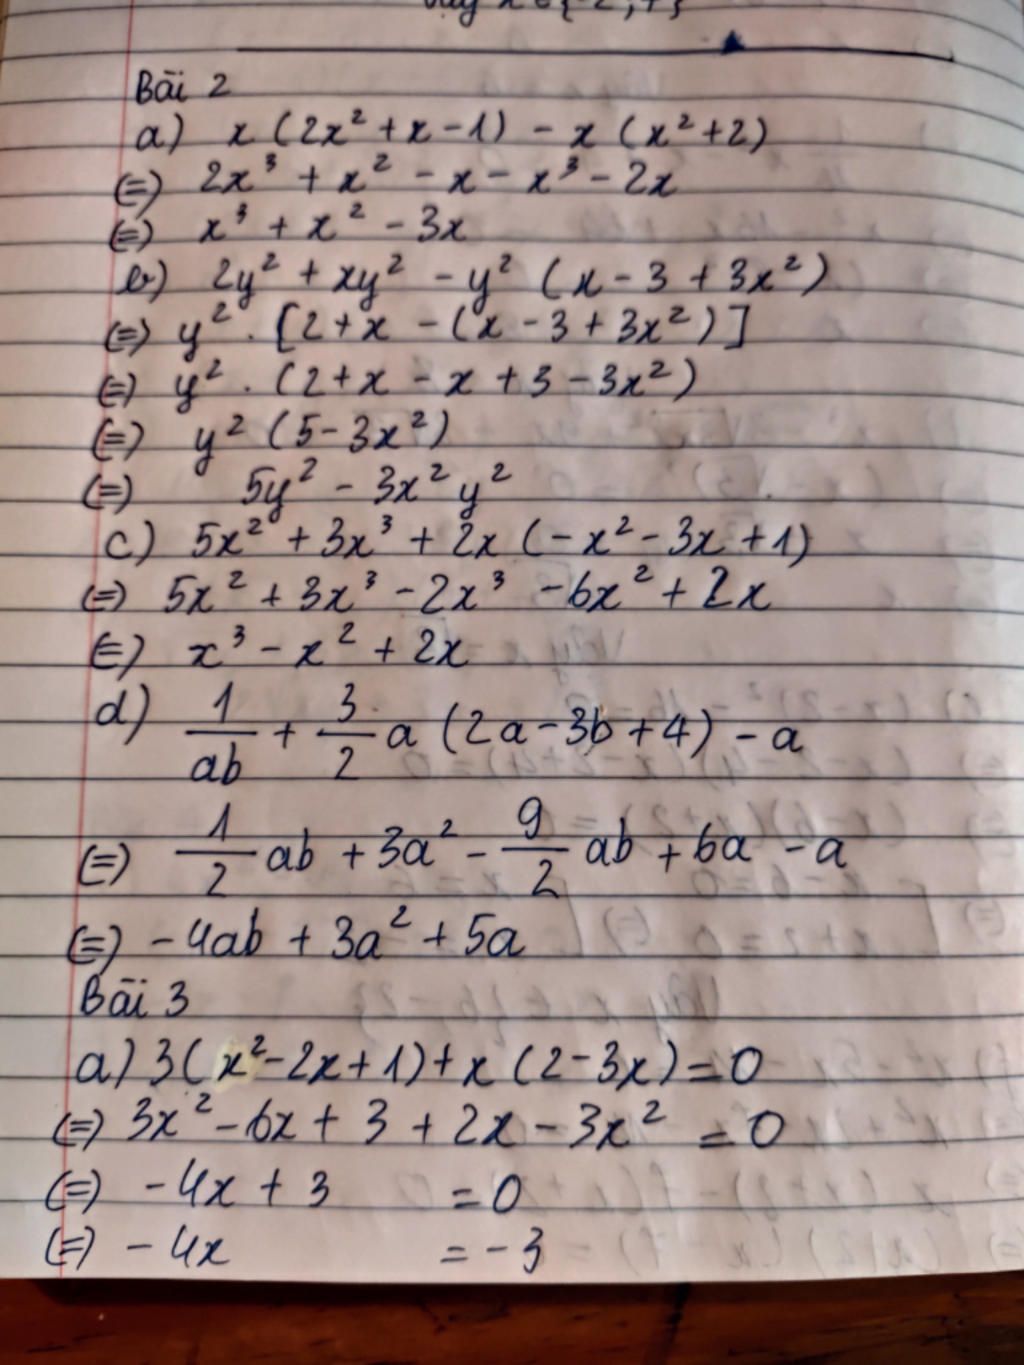 Bài 2
a) x (2x² + x - 1) - x (x² + 2)
(=) 2x³ + x² - x - x³ - 2x
(=) x³ + x² - 3x
b) 2y² + xy² - y² (x - 3 + 3x²)
(=) y² . [2 + x - (x - 3 + 3x²)]
(=) y² . (2 + x - x + 3 - 3x²)
(=) y² (5 - 3x²)
(=) 5y² - 3x²y²
c) 5x² + 3x³ + 2x (-x² - 3x + 1)
(=) 5x² + 3x³ - 2x³ - 6x² + 2x
(=) x³ - x² + 2x
d) 1/ab + 3/2 a (2a - 3b + 4) - a
(=) 1/2 ab + 3a² - 9/2 ab + 6a - a
(=) - 4ab + 3a² + 5a
Bài 3
a) 3(x² - 2x + 1) + x (2 - 3x) = 0
(=) 3x² - 6x + 3 + 2x - 3x² = 0
(=) - 4x + 3 = 0
(=) - 4x = - 3